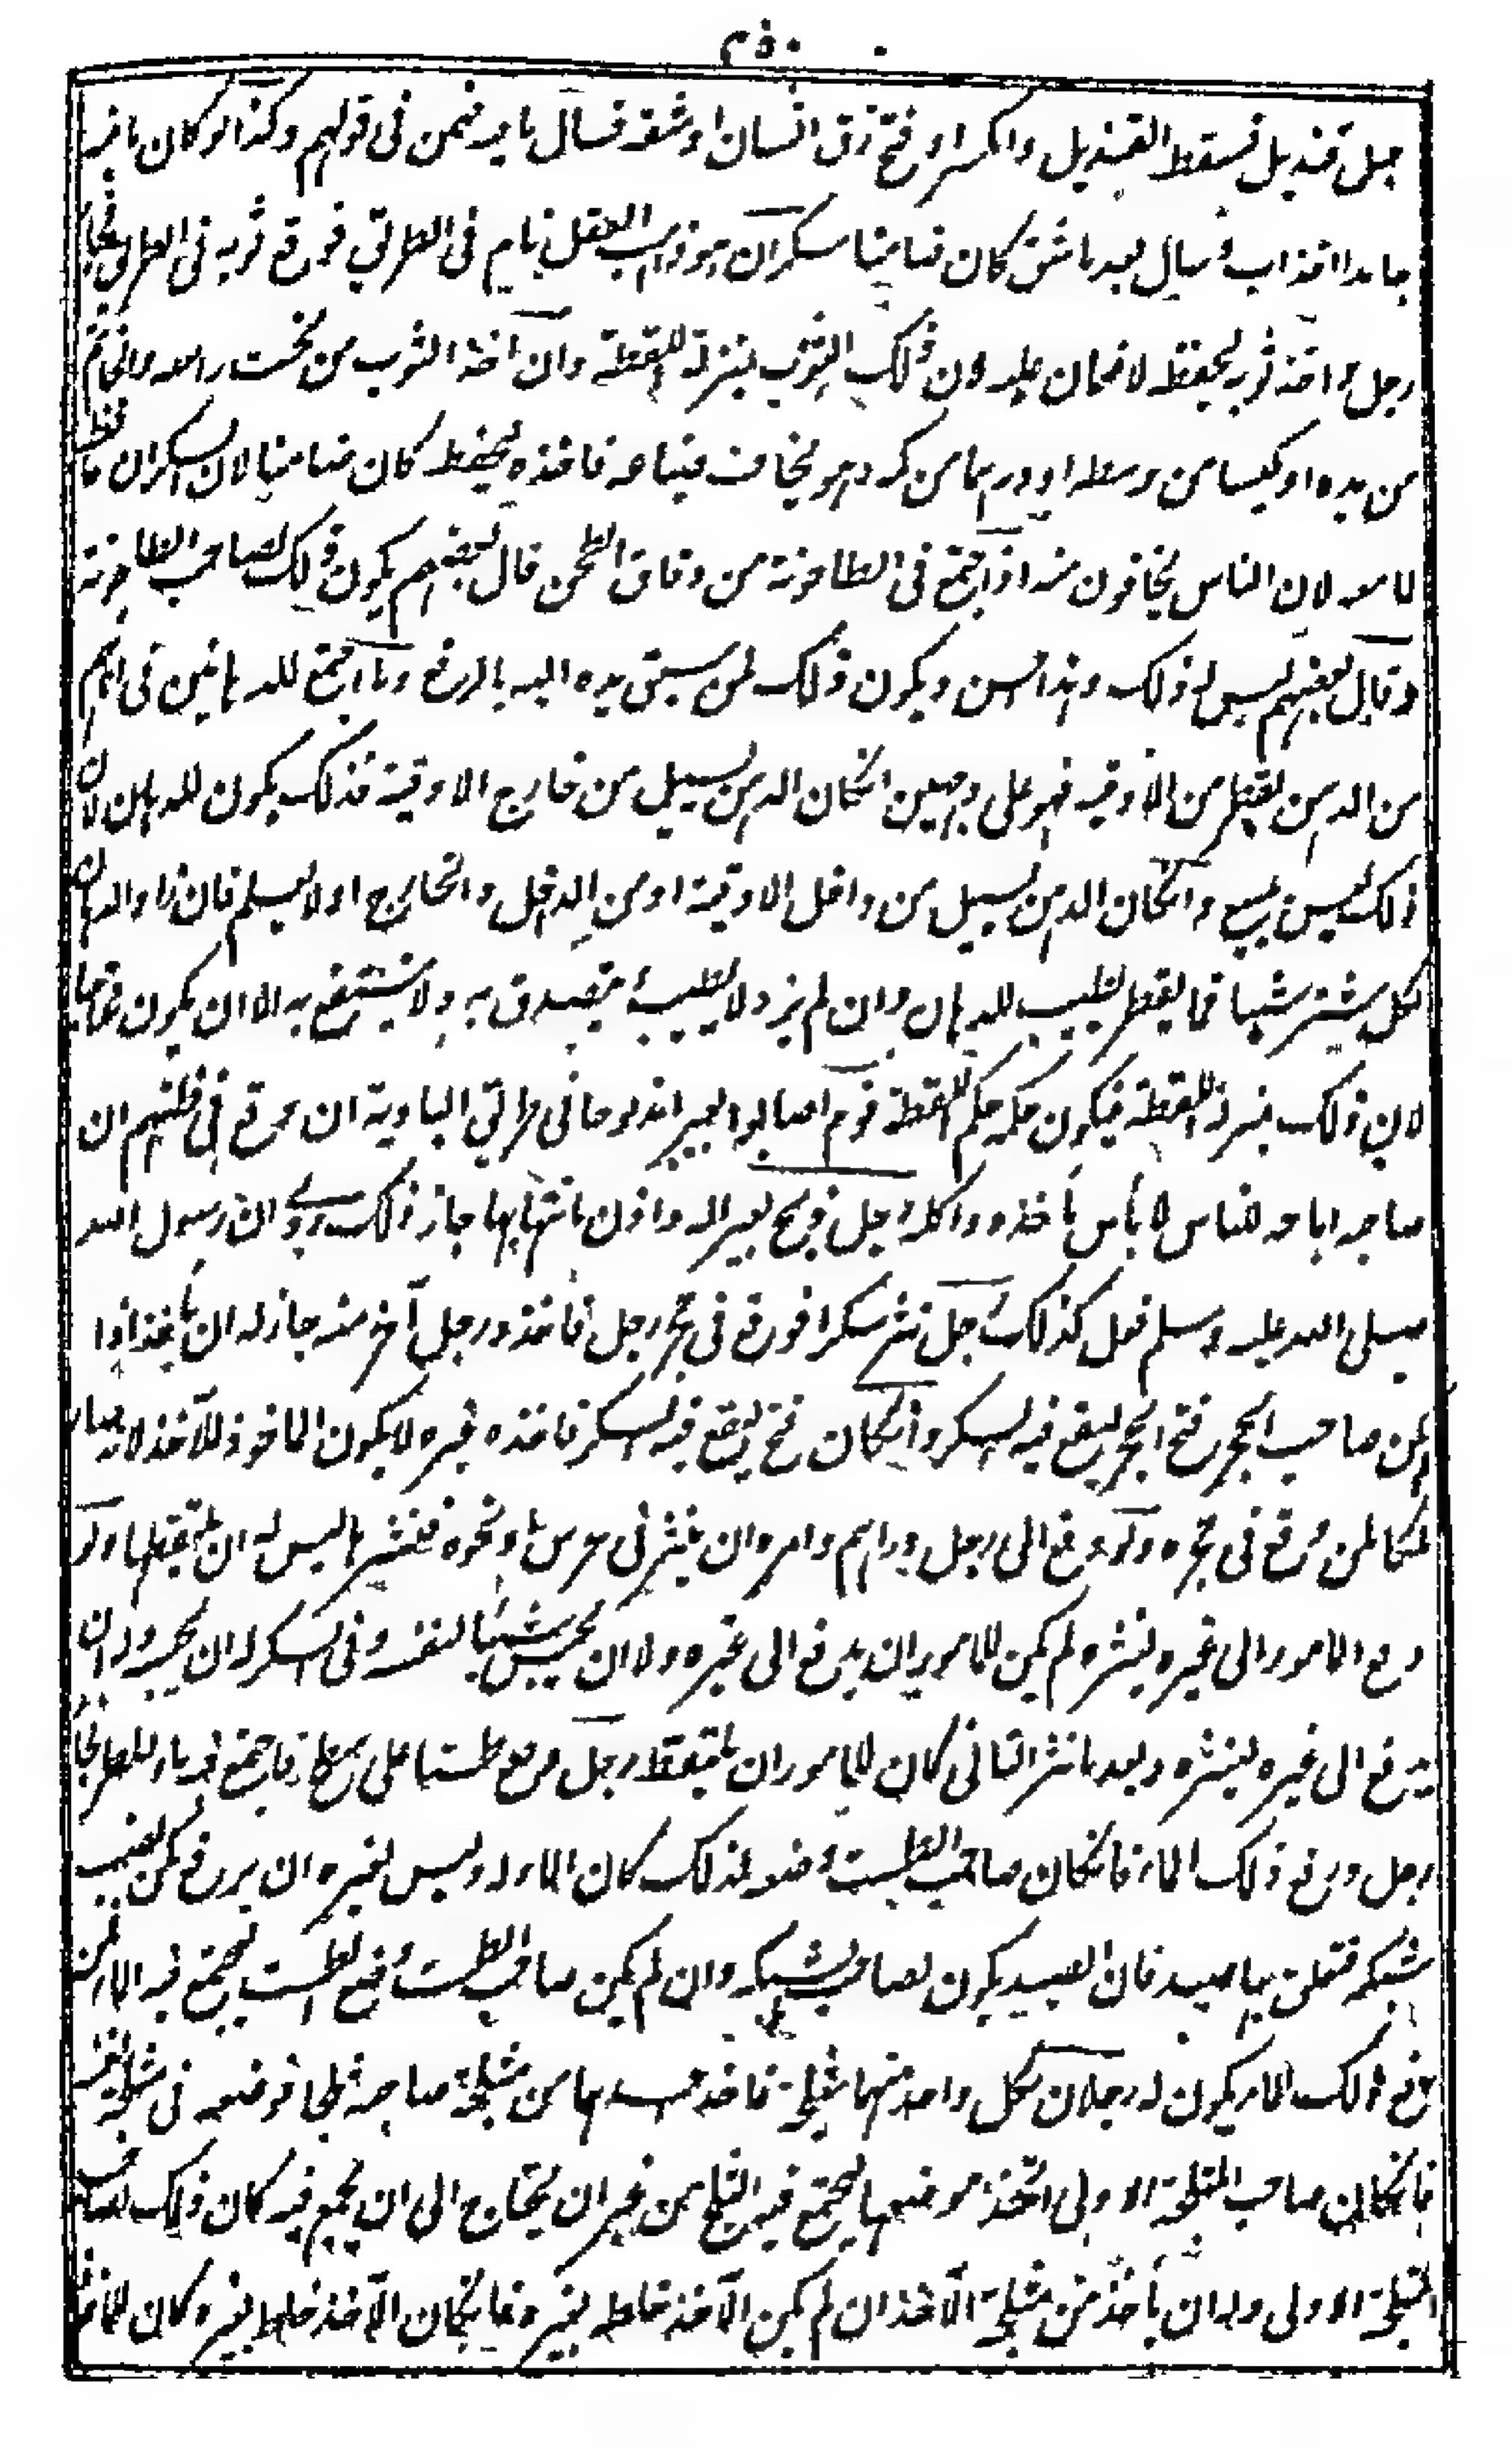 ٢٥٠
حبل قنديل فسقط القنديل وانكسر او فتح زق انسان او شقه فسال ما فيه ضمن فى قولهم وكذا لو كان ما فيه
جامدا فذاب وسال بعد ما شق كان ضامنا سكران هو ذاهب العقل نايم فى الطريق فوقع ثوبه فى الطريق فجاء
رجل واخذ ثوبه ليحفظه لا ضمان عليه لان ذلك الثوب بمنزلة اللقطة وان اخذ الثوب من تحت راسه والخاتم
من يده او كيسا من وسطه او درهما من كمه وهو يخاف ضياعه فاخذه ليحفظه كان ضامنا لان السكران حافظ
لما معه لان الناس يخافون منه اذا اجتمع فى الطاحونة من دقاق الطحن قال بعضهم يكون ذلك لصاحب الطاحونة
وقال بعضهم ليس له ذلك وهذا احسن ويكون ذلك لمن سبق يده اليه بالرفع وما اجتمع للدهانين فى انائهم
من الدهن يقطر من الاوقية فهو على وجهين انكان الدهن يسيل من خارج الاوقية فذلك يكون للدهان لان
ذلك ليس بمبيع وانكان الدهن يسيل من داخل الاوقية او من الداخل والخارج او لا يعلم فان زاد الدهان
لكل مشتر شيئا فما يقطر يطيب للدهان وان لم يزد لا يطيب ويتصدق به ولا ينتفع به الا ان يكون محتاجا
لان ذلك بمنزلة اللقطة فيكون حكمه حكم اللقطة قوم اصابوا بعيرا مذبوحا فى طريق البادية ان وقع فى ظنهم ان
صاحبه اباحه للناس لا بأس بأخذه واكله رجل ذبح بعيرا له واذن بانتهابها جاز ذلك روى ان رسول الله
صلى الله عليه وسلم فعل كذلك رجل نثر سكرا فوقع فى حجر رجل فاخذه رجل آخر منه جاز له ان يأخذ اذا
لم يكن صاحب الحجر فتح الحجر ليقع فيه السكر وانكان فتح ليقع فيه السكر فاخذه غيره لا يكون الماخوذ للآخذ لانه صار
ملكا لمن وقع فى حجره ولو دفع الى رجل دراهم وامره ان ينثر فى عرس او نحوه فنثرها ليس له ان يلتقطها ولو
دفع المامور الى غيره لينثره لم يكن للمامور ان يدفع الى غيره ولا ان يحبس شيئا لنفسه وفى السكر له ان يحبس وله ان
يدفع الى غيره لينثره وبعد ما نثر الثانى كان للمامور ان يلتقط رجل وضع طستا على سطح فاجتمع فيه ماء المطر فجاء
رجل ورفع ذلك الماء فانكان صاحب الطست وضعه لذلك كان الماء له وليس لغيره ان يرفع كمن نصب
شبكة فتعلق بها صيد فان الصيد يكون لصاحب الشبكة وان لم يكن صاحب الطست وضع الطست ليجتمع فيه الماء لمن
رفع ذلك الماء يكون له رجلان لكل واحد منهما مثلجة فاخذ احدهما من مثلجة صاحبه ثلجا فوضعه فى مثلجة نفسه
فانكان صاحب المثلجة الاولى اتخذ موضعها ليجتمع فيه الثلج من غير ان يحتاج الى ان يجمع فيه كان ذلك لصاحب
المثلجة الاولى وله ان يأخذ من مثلجة الآخذ ان لم يكن الآخذ خلطه بغيره فانكان الآخذ خلط بغيره كان للاخذ